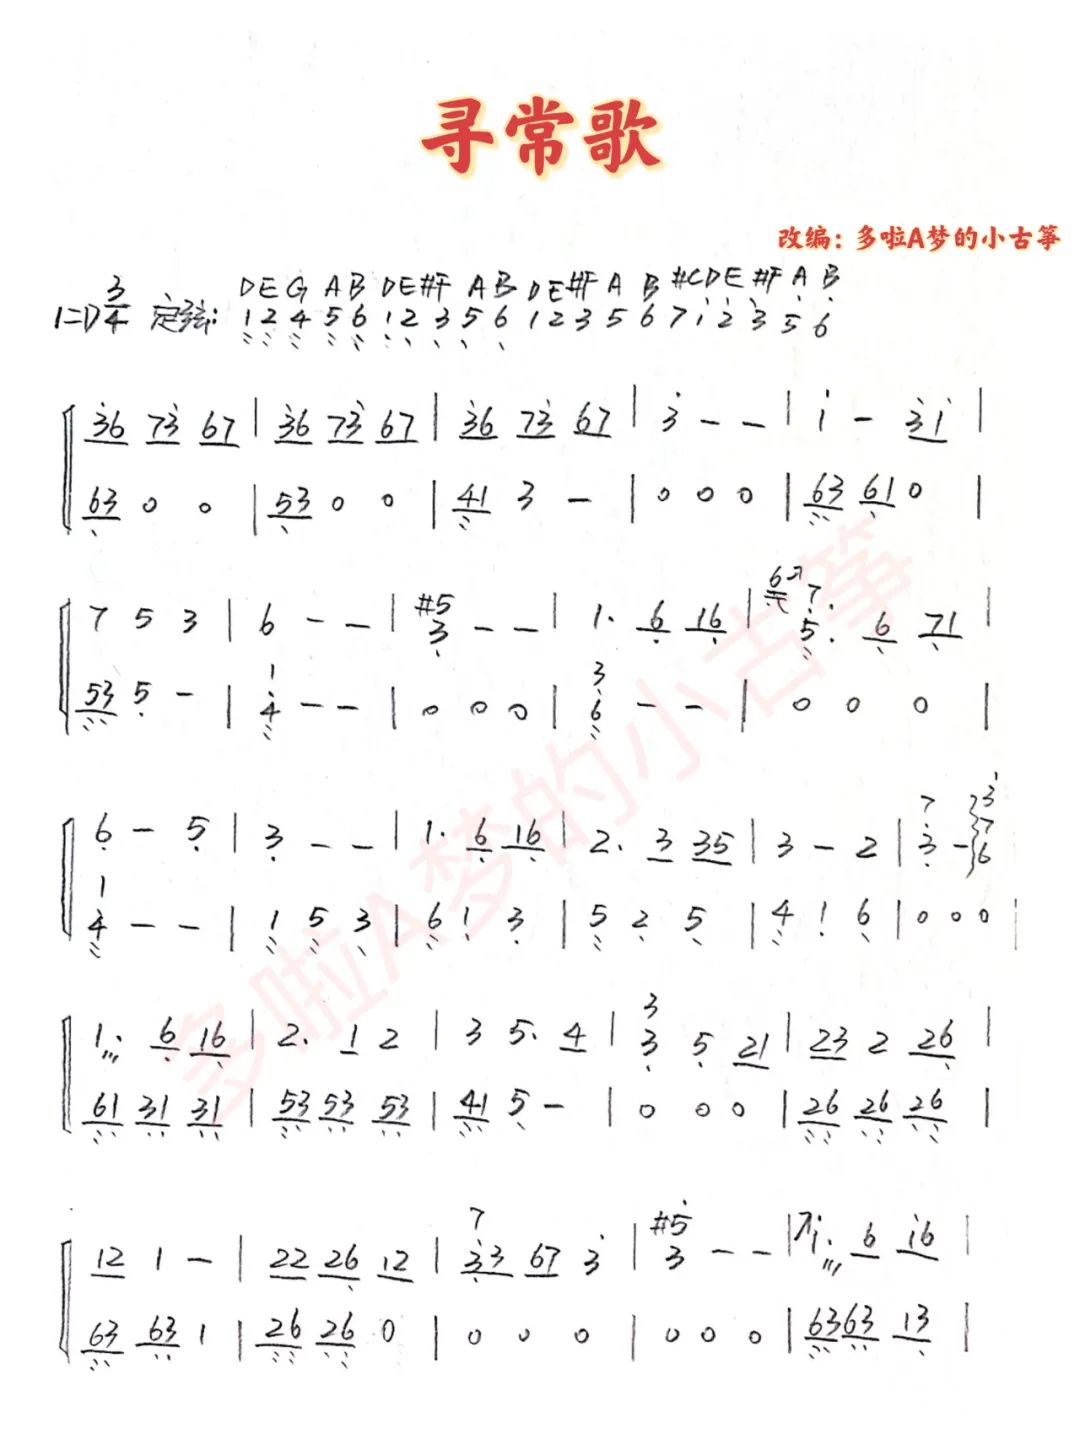 寻常歌
改编：多啦A梦的小古筝
DEG AB DE#F AB DE#F A B #CDE #F A B
1=D 3/4 定弦: 1 2 4 5 6 1 2 3 5 6 1 2 3 5 6 7 1 2 3 5 6
36 73 67 | 36 73 67 | 36 73 67 | 3 - - | 1 - 31 |
63 0 0 | 53 0 0 | 41 3 - | 0 0 0 | 63 61 0 |
7 5 3 | 6 - - | #5 3 - - | 1. 6 16 | 6 7 5. 6 71 |
53 5 - | 1 4 - - | 0 0 0 | 3 6 - - | 0 0 0 |
6 - 5 | 3 - - | 1. 6 16 | 2. 3 35 | 3 - 2 | 7 3 - 3 7 6
1 4 - - | 1 5 3 | 6 1 3 | 5 2 5 | 4 1 6 | 0 0 0 |
1. 6 16 | 2. 1 2 | 3 5. 4 | 3 3 5 21 | 23 2 26 |
61 31 31 | 53 53 53 | 41 5 - | 0 0 0 | 26 26 26 |
12 1 - | 22 26 12 | 7 33 67 3 | #5 3 - - | 1. 6 16 |
63 63 1 | 26 26 0 | 0 0 0 | 0 0 0 | 63 63 13 |
多啦A梦的小古筝